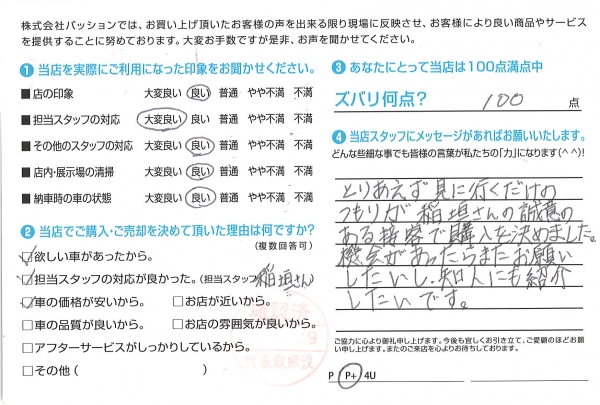 株式会社パッションでは、お買い上げ頂いたお客様の声を出来る限り現場に反映させ、お客様により良い商品やサービス
を提供することに努めております。大変お手数ですが是非、お声を聞かせてください。
1 当店を実際にご利用になった印象をお聞かせください。
■店の印象 大変良い 良い 普通 やや不満 不満
■担当スタッフの対応 大変良い 良い 普通 やや不満 不満
■その他のスタッフの対応 大変良い 良い 普通 やや不満 不満
■店内・展示場の清掃 大変良い 良い 普通 やや不満 不満
■納車時の車の状態 大変良い 良い 普通 やや不満 不満
2 当店でご購入・ご売却を決めて頂いた理由は何ですか?
(複数回答可)
☑欲しい車があったから。
☑担当スタッフの対応が良かった。(担当スタッフ 稲垣さん)
☑車の価格が安いから。 □お店が近いから。
□車の品質が良いから。 □お店の雰囲気が良いから。
□アフターサービスがしっかりしているから。
□その他( )
確認済
代表取締役
3 あなたにとって当店は100点満点中
ズバリ何点? 100 点
4 当店スタッフにメッセージがあればお願いいたします。
どんな些細な事でも皆様の言葉が私たちの「力」になります(^ ^)!
とりあえず見に行くだけの
つもりが稲垣さんの誠意の
ある接客で購入を決めました。
機会があったらまたお願い
したいし、知人にも紹介
したいです。
ご協力に心より御礼申し上げます。今後も宜しくお引き立て、ご愛顧のほどお願
い申し上げます。またのご来店を心よりお待ちしております。
P P+ 4U